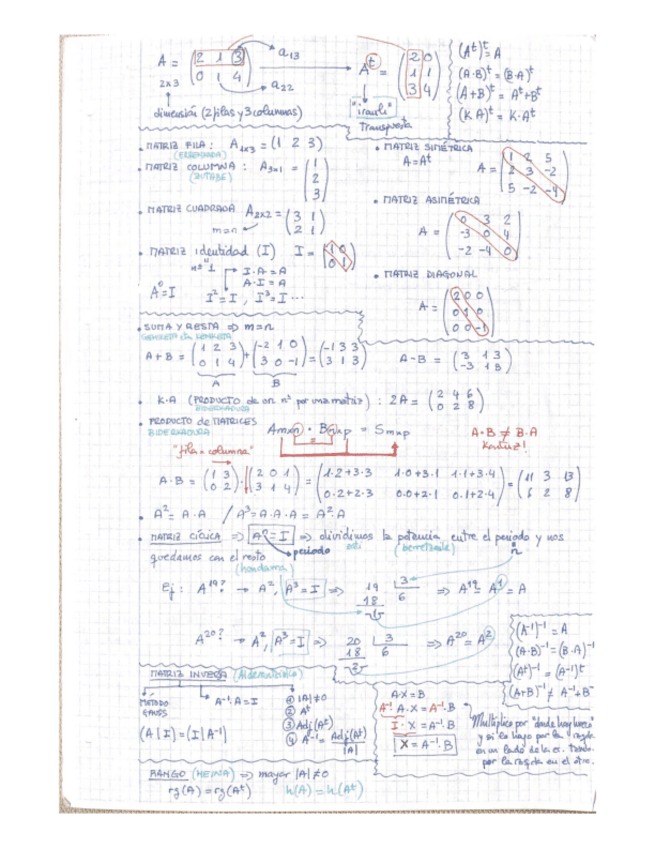 A = (2 1 3) → a13
(0 1 4) → a22
2x3
dimensión (2 filas y 3 columnas)
Aᵗ = (2 0)
(1 1)
(3 4)
"irauli"
Transpuesta
(Aᵗ)ᵗ = A
(A·B)ᵗ = (B·A)ᵗ
(A+B)ᵗ = Aᵗ+Bᵗ
(K·A)ᵗ = K·Aᵗ
• MATRIZ FILA: A1x3 = (1 2 3)
(ERRENKADA)
• MATRIZ COLUMNA: A3x1 = (1)
(ZUTABE) (2)
(3)
• MATRIZ CUADRADA A2x2 = (3 1)
m=n (2 1)
• MATRIZ identidad (I) I = (1 0)
(0 1)
nº "1"
I·A = A
A·I = A
A⁰=I I² = I, I³ = I ...
• MATRIZ SIMÉTRICA
A = Aᵗ
A = (1 2 5)
(2 3 -2)
(5 -2 -4)
• MATRIZ ASIMÉTRICA
A = (0 3 2)
(-3 0 4)
(-2 -4 0)
• MATRIZ DIAGONAL
A = (2 0 0)
(0 1 0)
(0 0 -1)
• SUMA Y RESTA ⇒ m=n
A + B = (1 2 3) + (-2 1 0) = (-1 3 3)
(0 1 4) (3 0 -1) (3 1 3)
A B
A - B = (3 1 3)
(-3 1 5)
• K·A (PRODUCTO de un nº por una matriz): 2A = (2 4 6)
BIDERKADURA (0 2 8)
• PRODUCTO de MATRICES
BIDERKADURA
Amxn · Bnxp = Smxp
A·B ≠ B·A
Kontuz!
"fila x columna"
A·B = (1 3) · (2 0 1) = (1·2+3·3 1·0+3·1 1·1+3·4) = (11 3 13)
(0 2) (3 1 4) (0·2+2·3 0·0+2·1 0·1+2·4) (6 2 8)
• A² = A·A / A³ = A·A·A = A²·A
• MATRIZ CÍCLICA ⇒ Aⁿ = I ⇒ dividimos la potencia entre el periodo y nos
periodo (berretzaile) n
quedamos con el resto
(hondarra)
Ej: A¹⁹? → A², A³ = I ⇒ 19 | 3 ⇒ A¹⁹ = A¹ = A
18 6
1
A²⁰? → A², A³ = I ⇒ 20 | 3 ⇒ A²⁰ = A²
18 6
2
(A⁻¹)⁻¹ = A
(A·B)⁻¹ = (B·A)⁻¹
(Aᵗ)⁻¹ = (A⁻¹)ᵗ
(A+B)⁻¹ ≠ A⁻¹+B⁻
MATRIZ INVERSA (Alderantzizko)
MÉTODO
GAUSS
(A | I) = (I | A⁻¹)
A⁻¹·A = I
① |A| ≠ 0
② Aᵗ
③ Adj(Aᵗ)
④ A⁻¹ = Adj(Aᵗ)
|A|
A·X = B
A⁻¹·A·X = A⁻¹·B
I·X = A⁻¹·B
X = A⁻¹·B
Multiplico por "donde hay hueco"
y si lo hago por la izqda
en un lado de la ec. Tamb.
por la izqda en el otro.
RANGO (HEINA) ⇒ mayor |A| ≠ 0
rg(A) = rg(Aᵗ) h(A) = h(Aᵗ)